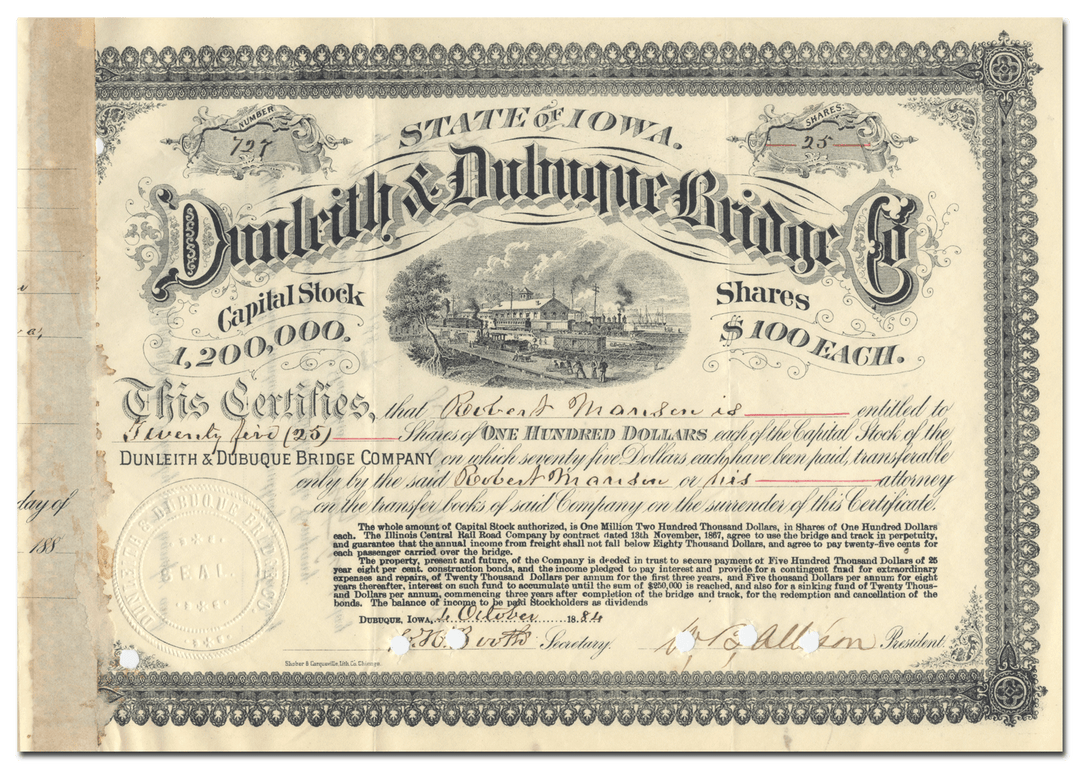 NUMBER
727
SHARES
25
STATE OF IOWA.
Dunleith & Dubuque Bridge Co
Capital Stock
1,200,000.
Shares
$100 EACH.
This Certifies, that Robert Manson is entitled to
Twenty five (25) Shares of ONE HUNDRED DOLLARS each of the Capital Stock of the
DUNLEITH & DUBUQUE BRIDGE COMPANY on which seventy five Dollars, each, have been paid, transferable
only by the said Robert Manson or his attorney
on the transfer books of said Company on the surrender of this Certificate.
The whole amount of Capital Stock authorized, is One Million Two Hundred Thousand Dollars, in Shares of One Hundred Dollars
each. The Illinois Central Rail Road Company by contract dated 13th November, 1867, agree to use the bridge and track in perpetuity,
and guarantee that the annual income from freight shall not fall below Eighty Thousand Dollars, and agree to pay twenty-five cents for
each passenger carried over the bridge.
The property, present and future, of the Company is deeded in trust to secure payment of Five Hundred Thousand Dollars of 25
year eight per cent. construction bonds, and the income pledged to pay interest and provide for a contingent fund for extraordinary
expenses and repairs, of Twenty Thousand Dollars per annum for the first three years, and Five thousand Dollars per annum for eight
years thereafter, interest on such fund to accumulate until the sum of $250,000 is reached, and also for a sinking fund of Twenty Thous-
and Dollars per annum, commencing three years after completion of the bridge and track, for the redemption and cancellation of the
bonds. The balance of income to be paid Stockholders as dividends
DUBUQUE, IOWA, 4 October 1884
Booth Secretary. Allison President.
SEAL
day of
188